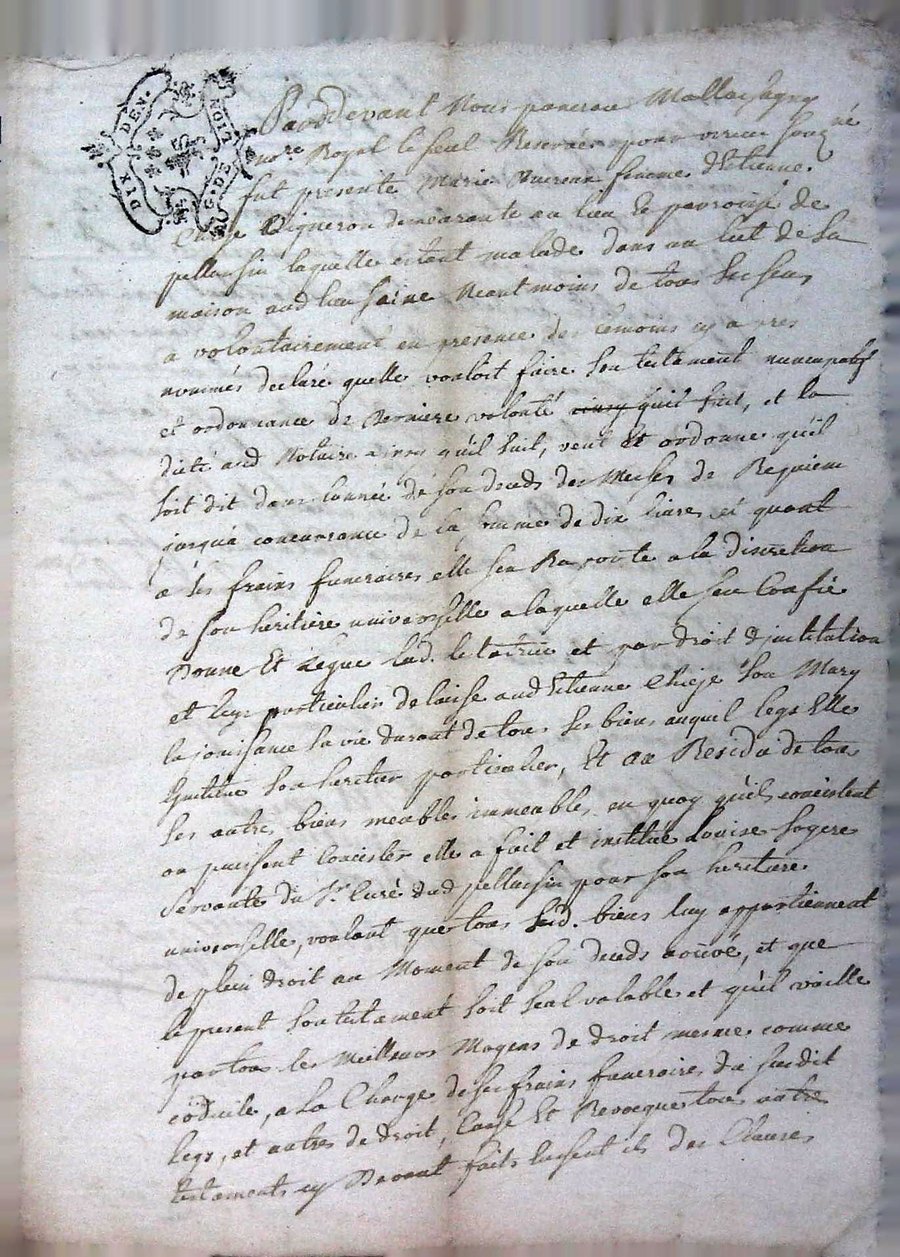 DIX DEN.
G. DE LION
Pardevant Nous
no.re Royal le seul Reservé pour
fut presente Marie femme d'Etienne
Vigneron demeurante au lieu & parroisse de
pellussin laquelle estant malade dans un lict de sa
maison aud lieu saine Neantmoins de tous ses sens
a volontairement en presence des temoins cy apres
nommés declaré quelle vouloit faire son testament nuncupatif
et ordonnance de derniere volonté ainsy quil suit, et la
dicté aud Notaire ainsy qu'il suit, veut Et ordonne qu'il
soit dit dans l'année de son deceds des Messes de Requiem
jusqua concurrance de la somme de dix livres, et quant
a ses frairs funeraires elle sen Raporte a la discretion
de son heritiere universselle a laquelle elle sen Confie
Donne Et Legue lad. testatrice et par droit d'institution
et legs particulier delaisse aud Etienne Chieze son Mary
la jouissance sa vie durant de tous ses biens auquil legs Elle
Institue son heritier particulier, Et au Residu de tous
ses autres biens meubles immeubles, en quoy qu'ils consistent
ou puissent Concister elle a fait et institué Louise Sogere
Servante du Sr. Curé dud pellussin pour son heritiere
universselle, voulant que tous sesd. biens luy appartiennent
de plein droit au Moment de son deceds arrivé, et que
le present son testament soit seul valable et qu'il vaille
par tous les Meilleurs Moyens de droit mesme comme
codicile, a la Charge de ses frairs funeraires du susdit
legs, et autres de droit, Casse Et Revocque tous autres
testaments cy Devant faits fussent ils des Clauses